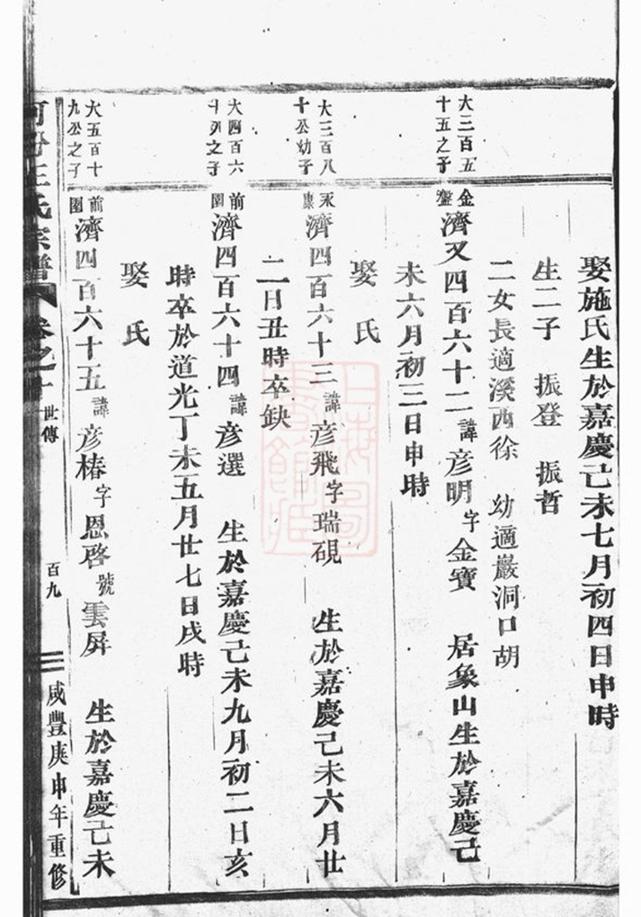 娶施氏生於嘉慶己未七月初四日申時
生二子 振登 振哲
二女長適溪西徐 幼適巖洞口胡
大三百五十五之子
金 濟又四百六十二諱彥明字金寶 居象山生於嘉慶己
未六月初三日申時
娶氏
大三百八十公幼子
濟四百六十三諱彥飛字瑞硯 生於嘉慶己未六月廿
二日丑時卒缺
大四百六十之子
前園濟四百六十四諱彥選 生於嘉慶己未九月初二日亥
時卒於道光丁未五月廿七日戌時
娶氏
大五百十九公之子
前園濟四百六十五諱彥椿字恩啓號雲屏 生於嘉慶己未
王氏宗譜 卷之十 世傳 百九 咸豐庚申年重修